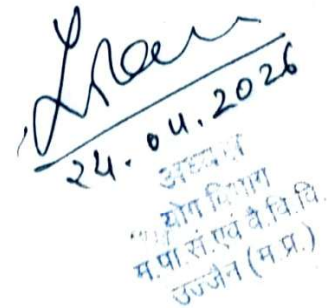 24.04.2026
अध्यक्ष
योग विभाग
म.पा.सं.एवं वै.वि.वि.
उज्जैन (म.प्र.)